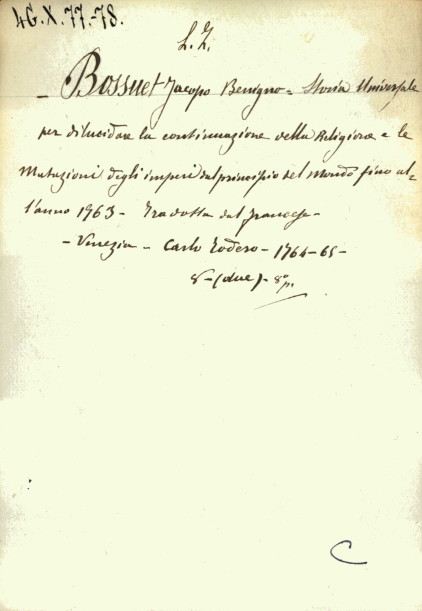 4G.X.77.-78.
L. Z.
- Bossuet Jacopo Benigno = Storia Universale
per dilucidare la continuazione della Religione e le
Mutazioni degli imperi dal principio del Mondo fino al=
l'anno 1763 - Tradotta dal francese -
- Venezia - Carlo Todero - 1764-65 -
8 - (due) -
C